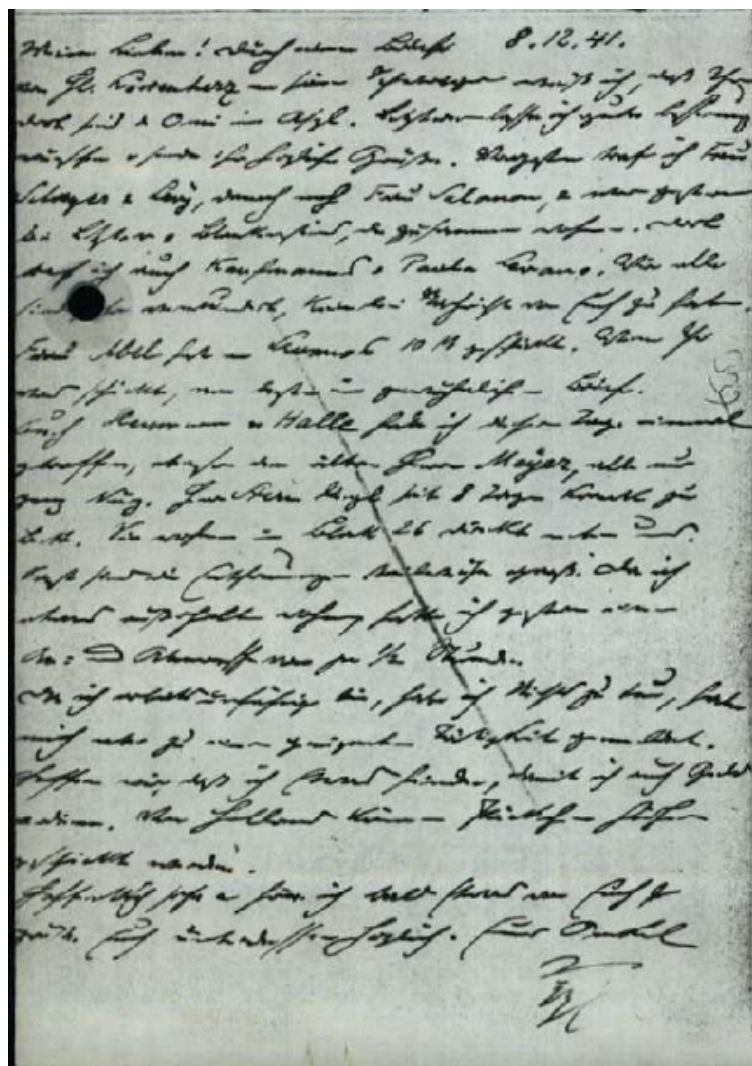 Meine Lieben! Durch einen Brief 8.12.41.
von Hl. an seine weiß ich, daß Ihr
dort seid & Omi im Asyl. Letzterer lasse ich gute Besserung
wünschen & sende ihr herzliche Grüße. Vorgestern traf ich Frau
& Levy, danach noch Frau Salomon, & war gestern
bei Letzterer & die zusammen wohnen. Dort
traf ich auch Kaufmanns & Paula Wir alle
sind sehr verwundert, keinerlei Nachricht von Euch zu haben.
Frau Abel hat an 10 M geschickt. Wenn Ihr
was schickt, am besten im gewöhnlichen Brief.
Auch Hermann & Halle habe ich dieser Tage einmal
getroffen, ebenso den alten Herrn Meyer, alle
ganz Herr Stern liegt seit 8 Tagen krank zu
Bett. Sie wohnen in Block 26 direkt neben uns.
sind die Entfernungen teilweise groß. Da ich
etwas außerhalb wohne, hatte ich gestern einen
An- & Abmarsch von je ½ Stunde.
Da ich arbeitsunfähig bin, habe ich nichts zu tun, habe
mich aber zu einer geeigneten Tätigkeit gemeldet.
Hoffen wir, daß ich etwas finde, damit ich auch Geld
verdiene. Von Holland können Päckchen hierher
geschickt werden.
Hoffentlich sehe & höre ich bald etwas von Euch &
grüße Euch unterdessen herzlich. Euer Onkel